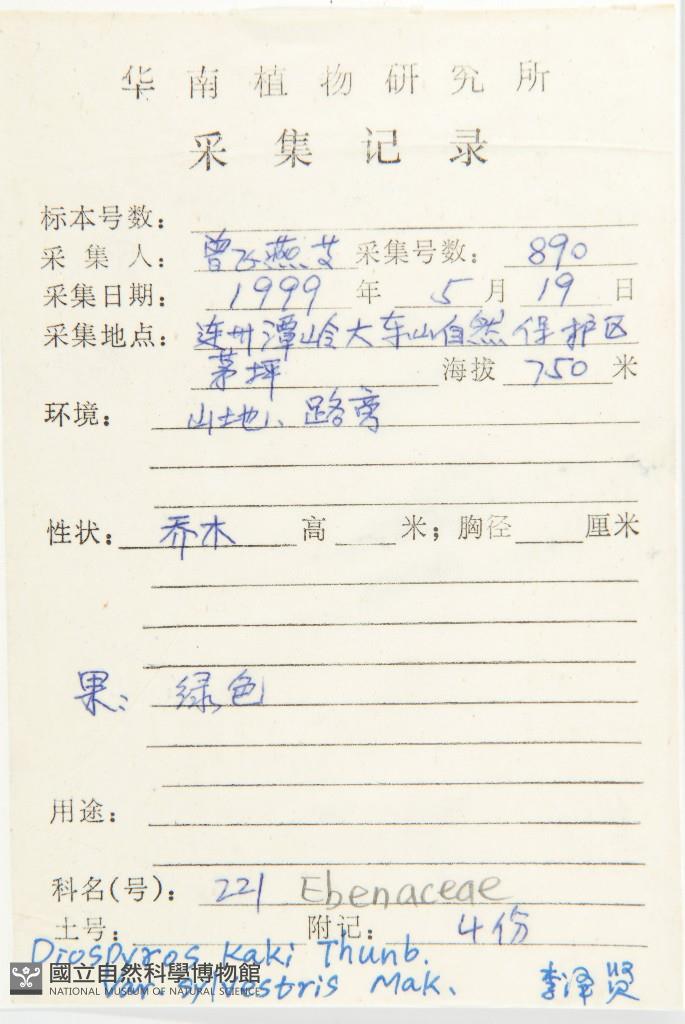 华南植物研究所
采集记录
标本号数：
采集人：曾飞燕等 采集号数：890
采集日期：1999年5月19日
采集地点：连州潭岭大东山自然保护区
茅坪 海拔 750 米
环境：山地、路旁
性状：乔木 高 米；胸径 厘米
果：绿色
用途：
科名(号)：221 Ebenaceae
土号： 附记：4份
Diospyros Kaki Thunb.
var sylvestris Mak. 李泽贤
國立自然科學博物館
NATIONAL MUSEUM OF NATURAL SCIENCE